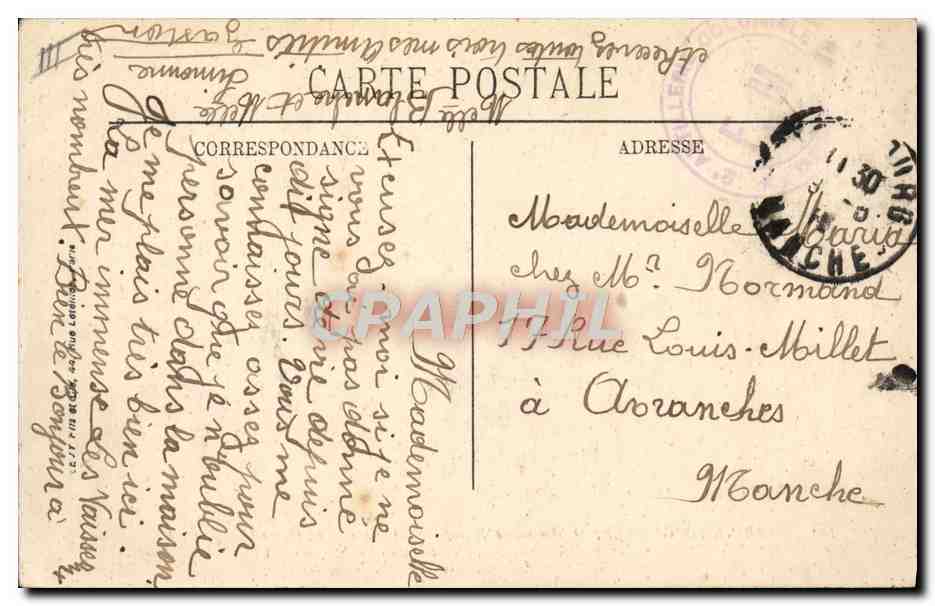 CARTE POSTALE
CORRESPONDANCE
ADRESSE
Mademoiselle
Excusez-moi si je ne
vous ai pas donné
signe de vie depuis
dix jours. Vous me
connaissez assez pour
savoir que je n'oublie
personne dans la maison
Je me plais très bien ici
la mer immense les Vaisseaux
très nombreux. Bien le bonjour à
Melle Blanche et Melle
Simonne
et Recevez toutes trois mes Amitiés
Gaston
Mademoiselle Maria
chez Mr. Normand
17 Rue Louis-Millet
à Avranches
Manche
11 30
MANCHE
COLONIALE
CRAPHIL
III